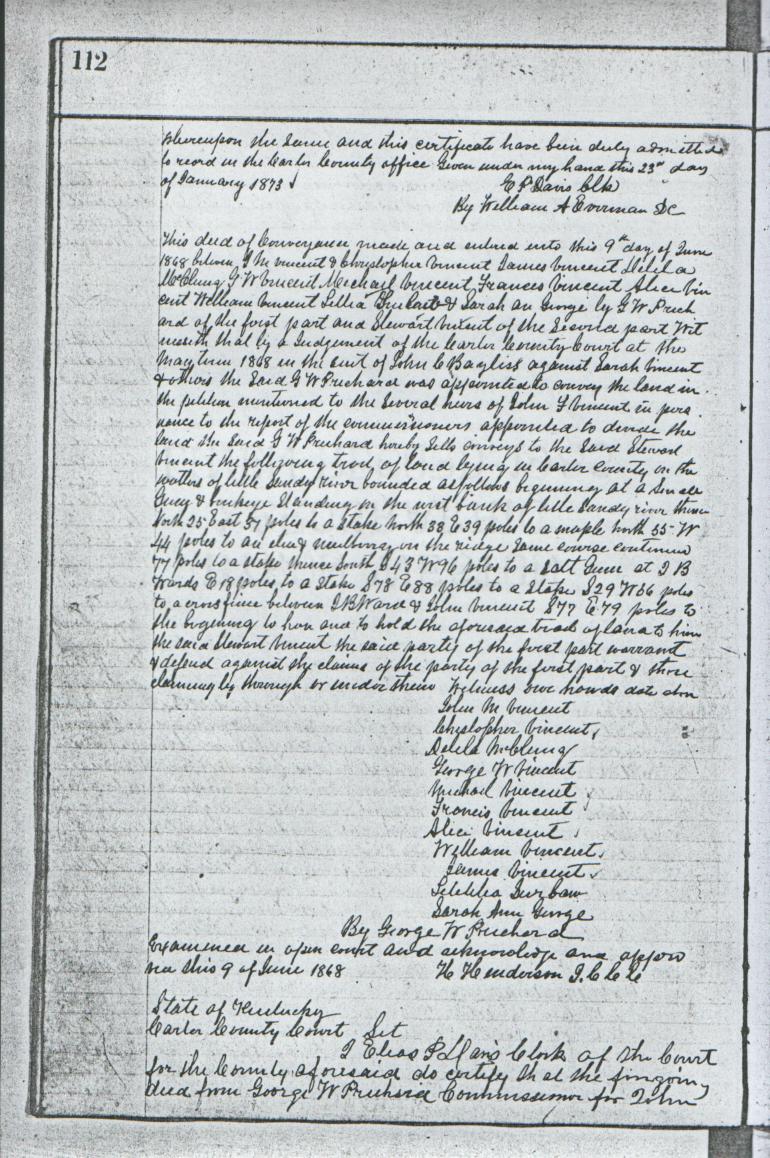 112
Whereupon the Same and this certificate have been duly admitted
to record in the Carter County office Given under my hand this 23rd day
of January 1873
E P Davis Clk
By William A Everman DC
This deed of Conveyance made and entered into this 9th day of June
1868 between J M Vincent & Christopher Vincent James Vincent Delila
McClung G W Vincent Michael Vincent Frances Vincent Alice Vin
cent William Vincent & Sarah an George by G W Prich
ard of the first part and Stewart Vincent of the Second part Wit
nesseth that by a Judgement of the Carter County Court at the
May term 1868 in the suit of John C Bayliss against Sarah Vincent
& others the Said G W Prichard was appointed to convey the land in
the petition mentioned to the Several heirs of John F Vincent in purs
uance to the report of the commissioners appointed to divide the
land the Said G W Prichard hereby Sells conveys to the Said Stewart
Vincent the following tract of land lying in Carter County on the
waters of little Sandy river bounded as follows begining at a Small
& buckeye Standing on the west bank of little Sandy river thence
North 25 East 57 poles to a stake North 38 E 39 poles to a maple north 55 W
44 poles to an elm & mulberry on the ridge Same course continued
77 poles to a stake thence South S 43 W 96 poles to a Salt Gum at J B
Wards E 18 poles to a Stake S 78 E 88 poles to a Stake S 29 W 56 poles
to a cross line between J B Ward & John Vincent S 77 E 79 poles to
the begining to have and to hold the aforesaid tract of land to him
the said Stewart Vincent the said party of the first part warrant
& defend against the claims of the party of the first part & those
claiming by through or under them Witness our hands date abv
John M Vincent
Christopher Vincent
Delila McClung
George W Vincent
Michael Vincent
Francis Vincent
Alice Vincent
William Vincent
James Vincent
Sarah Ann George
By George W Prichard
Examined in open court and acknowledge and appro
ved this 9 of June 1868 H Henderson J.C.C.C
State of Kentucky
Carter County Court Sct
I Elias P Davis Clerk of the Court
for the County aforesaid do certify that the foregoing
deed from George W Prichard Commissioner for John